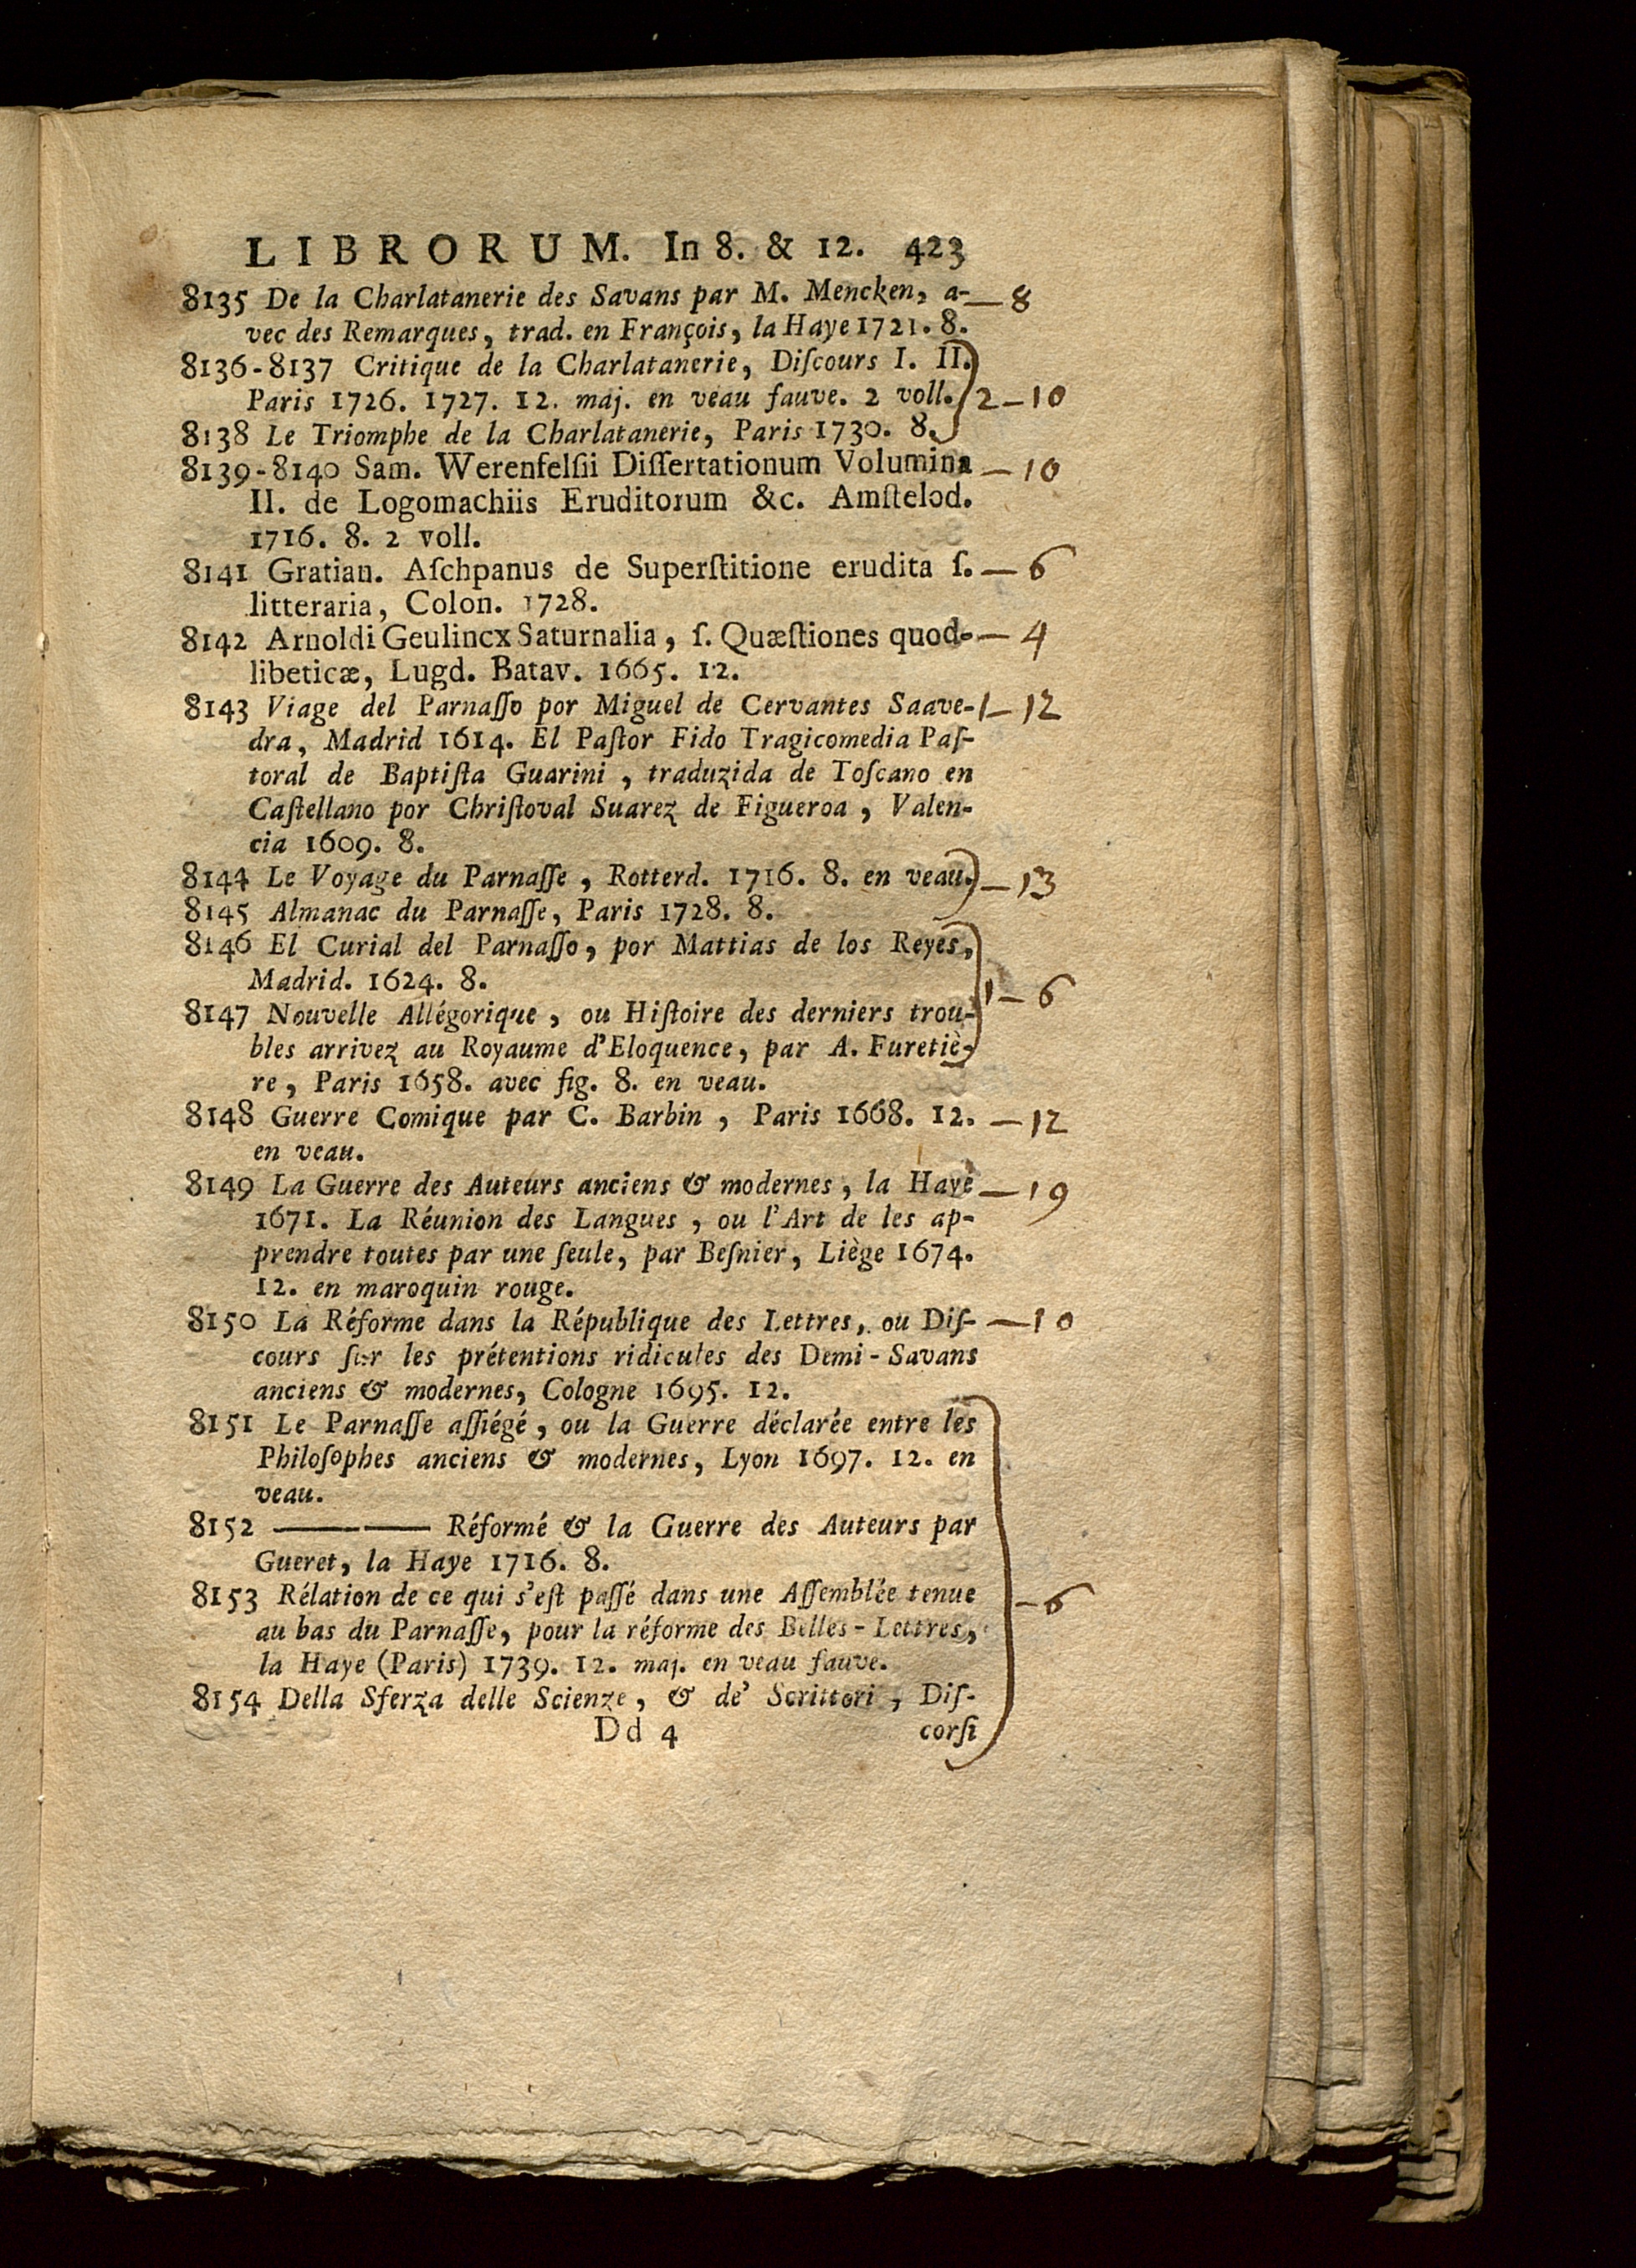 LIBRORUM. In 8. & 12. 423
8135 De la Charlatanerie des Savans par M. Mencken, a- — 8
vec des Remarques, trad. en François, la Haye 1721. 8.
8136-8137 Critique de la Charlatanerie, Diſcours I. II.
Paris 1726. 1727. 12. maj. en veau fauve. 2 voll. 2 — 10
8138 Le Triomphe de la Charlatanerie, Paris 1730. 8.
8139-8140 Sam. Werenfelſii Diſſertationum Volumina — 10
II. de Logomachiis Eruditorum &c. Amſtelod.
1716. 8. 2 voll.
8141 Gratian. Aſchpanus de Superſtitione erudita ſ. — 6
litteraria, Colon. 1728.
8142 Arnoldi Geulincx Saturnalia, ſ. Quæſtiones quod- — 4
libeticæ, Lugd. Batav. 1665. 12.
8143 Viage del Parnaſſo por Miguel de Cervantes Saave- 1 — 12
dra, Madrid 1614. El Paſtor Fido Tragicomedia Paſ-
toral de Baptiſta Guarini, traduzida de Toſcano en
Caſtellano por Chriſtoval Suarez de Figueroa, Valen-
cia 1609. 8.
8144 Le Voyage du Parnaſſe, Rotterd. 1716. 8. en veau. — 13
8145 Almanac du Parnaſſe, Paris 1728. 8.
8146 El Curial del Parnaſſo, por Mattias de los Reyes,
Madrid. 1624. 8.
1 — 6
8147 Nouvelle Allégorique, ou Hiſtoire des derniers trou-
bles arrivez au Royaume d'Eloquence, par A. Furetiè-
re, Paris 1658. avec fig. 8. en veau.
8148 Guerre Comique par C. Barbin, Paris 1668. 12. — 12
en veau.
8149 La Guerre des Auteurs anciens & modernes, la Haye — 19
1671. La Réunion des Langues, ou l'Art de les ap-
prendre toutes par une ſeule, par Beſnier, Liège 1674.
12. en maroquin rouge.
8150 La Réforme dans la République des Lettres, ou Diſ- — 10
cours ſur les prétentions ridicules des Demi-Savans
anciens & modernes, Cologne 1695. 12.
8151 Le Parnaſſe aſſiégé, ou la Guerre déclarée entre les
Philoſophes anciens & modernes, Lyon 1697. 12. en
veau.
8152 ——— Réformé & la Guerre des Auteurs par
Gueret, la Haye 1716. 8.
8153 Rélation de ce qui s'eſt paſſé dans une Aſſemblée tenue — 6
au bas du Parnaſſe, pour la réforme des Belles-Lettres,
la Haye (Paris) 1739. 12. maj. en veau fauve.
8154 Della Sferza delle Scienze, & de' Scrittori, Diſ-
Dd 4 corſi